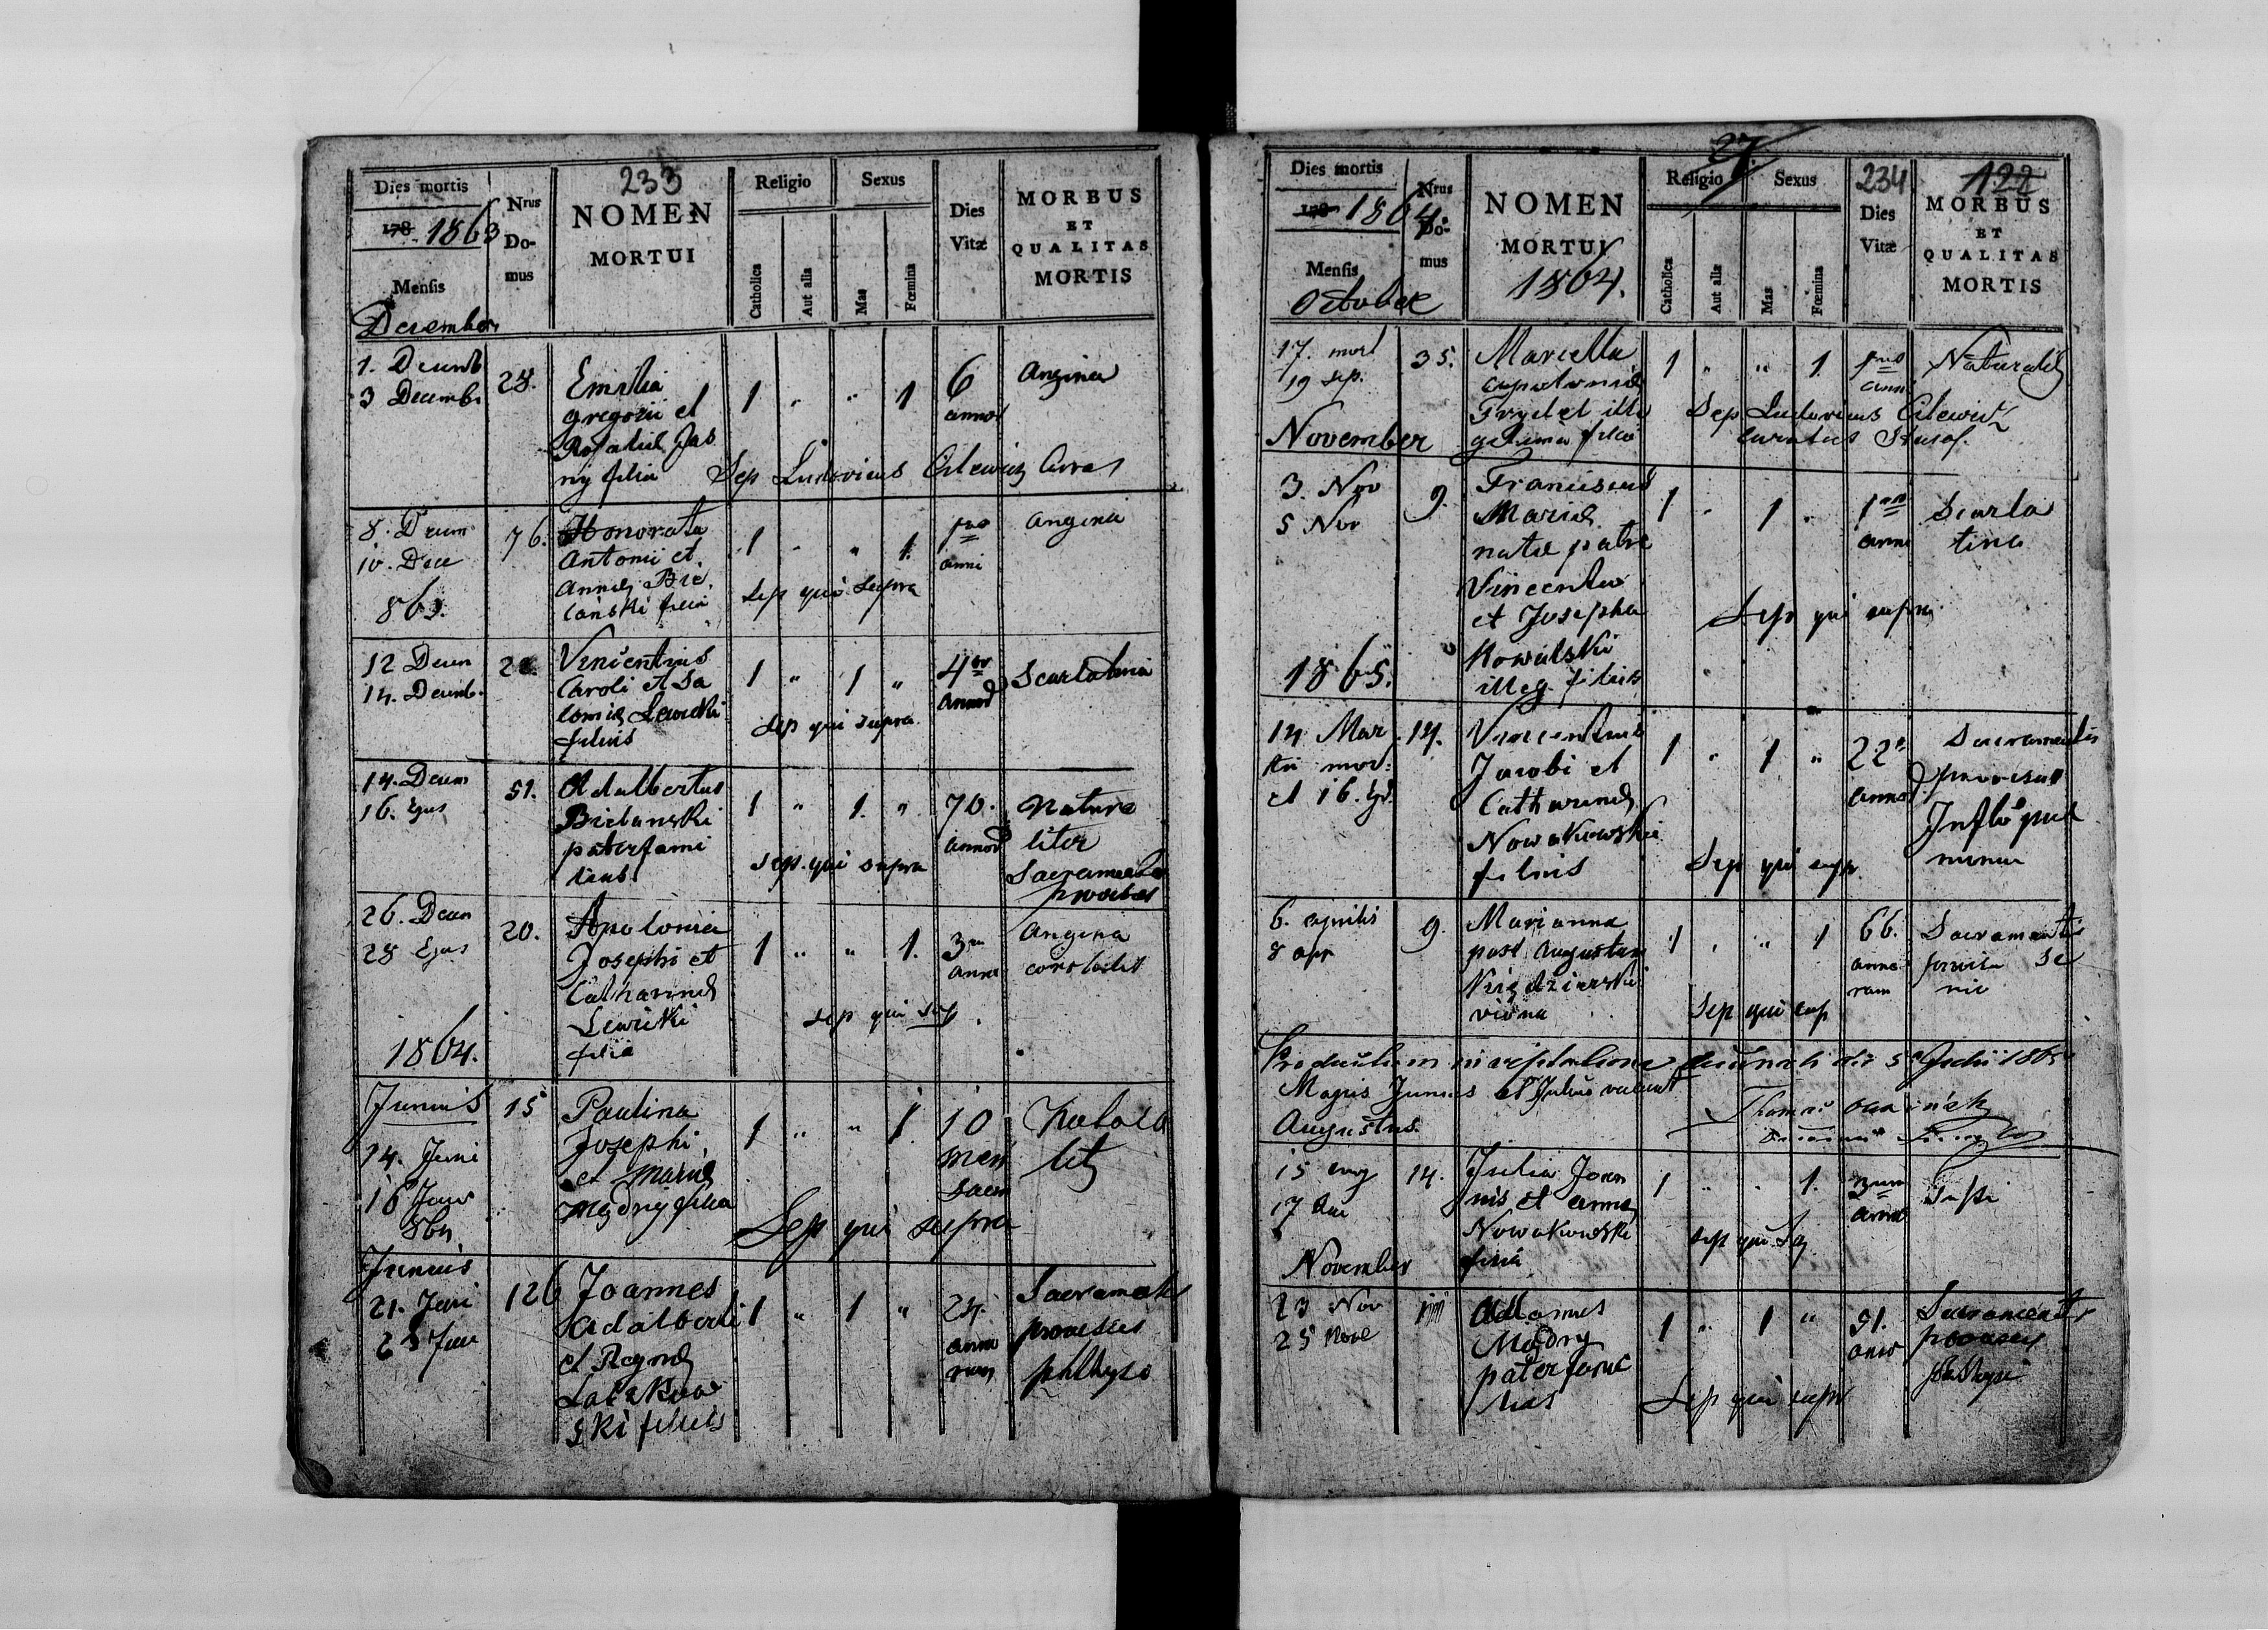 233
Dies mortis
178 1863
Mensis
December
Nrus Domus
NOMEN
MORTUI
Religio
Catholica
Aut alia
Sexus
Mas
Fœmina
Dies
Vitæ
MORBUS
ET
QUALITAS
MORTIS
1. Decemb
3 Decemb
28.
Emilia
Gregorii et
Rosaliæ Jas
ny filia
1 " " 1
6
annor
Angina
Sep Ludovicus Cilewicz
8. Decem
10. Dec
863.
76.
Honorata
Antonii et
Annæ Bie
lański filia
1 " " 1.
anni
angina
Sep qui supra
12 Decem
14. Decemb.
Vincentius
Caroli et Sa
lomiæ Lewicki
filius
1 " 1 "
4or
annor
Scarlatina
Sep qui supra
14. Decem
16. Ejus
51.
Adalbertus
Bielanski
paterfami
lias
1 " 1. "
70.
annor
Natura
liter
Sacramentis
provisus
Sep. qui supra
26. Decem
28 Ejus
20.
Apolonia
Josephi et
Catharinæ
Lewicki
filia
1 " " 1.
3um
annor
Angina
Sep qui sup
1864.
Junius
14. Juni
16 Juni
864
15
Paulina
Josephi
et Mariæ
Mądry filia
1 " " 1
10
men
Sep qui supra
Junius
21. Juni
23 Juni
126
Joannes
Adalberti
et Reginæ
ski filius
1 " 1 "
24.
anno
rum
Sacramentis
provisus
phthysis
27
234
122
Dies mortis
178 1864.
Mensis
October
Nrus Domus
NOMEN
MORTUI
1864.
Religio
Catholica
Aut alia
Sexus
Mas
Fœmina
Dies
Vitæ
MORBUS
ET
QUALITAS
MORTIS
17. mort
19 sep.
35.
Marcella
Apoloniæ
et ille
gitima filia
1 " " 1.
anni
Naturalis
Sep Ludovicus Cilewicz
curatus
November
3. Nov
5 Nov
9.
Franciscus
Mariæ
natæ patre
Vincentio
et Josepha
Kowalski
illeg. filius
1 " 1 "
anni
Scarla
tina
Sep qui supra
1865.
14 Mar
tii mor:
et 16.
14.
Vincentius
Jacobi et
Catharinæ
Nowakowski
filius
1 " 1 "
22
annor
Sacramentis
provisus
Sep qui supr
6. Aprilis
8 apr
9.
Marianna
post Augustum
vidua
1 " " 1
66.
anno
rum
Sacramentis
provisa Se
nio
Sep qui sup
Majus Junius et Julius vacant
Augustus.
15 aug
17 aug
14.
Julia Joan
nis et Annæ
Nowakowski
filia
1 " " 1.
Sep qui
November
23 Nov
25 Nov
Adamus
Mądry
paterfami
lias
1 " 1 "
51.
Sacramentis
provisus
phthysi
Sep qui supr